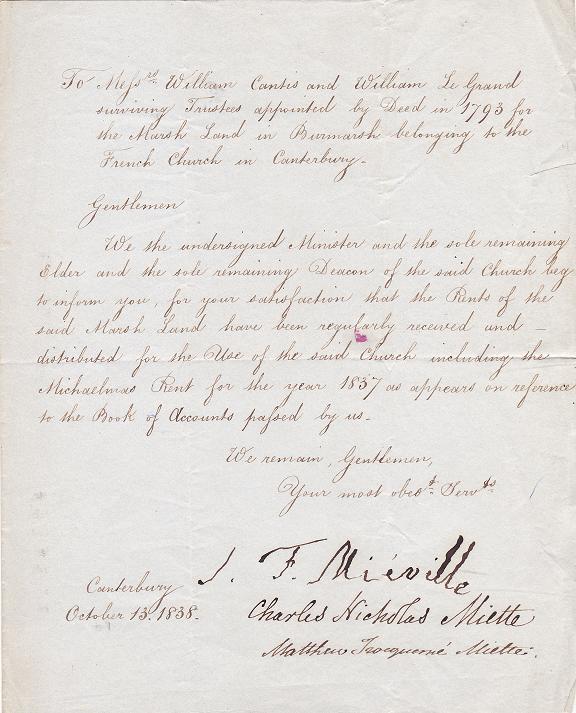 To Messrs. William Cantis and William Le Grand
surviving Trustees appointed by Deed in 1793 for
the Marsh Land in Burmarsh belonging to the
French Church in Canterbury.
Gentlemen
We the undersigned Minister and the sole remaining
Elder and the sole remaining Deacon of the said Church beg
to inform you, for your satisfaction that the Rents of the
said Marsh Land have been regularly received and –
distributed for the Use of the said Church including the
Michaelmas Rent for the year 1837 as appears on reference
to the Book of Accounts passed by us.
We remain, Gentlemen,
Your most obedt. Servts
J. F. Miéville
Canterbury
October 13. 1838.
Charles Nicholas Miette
Matthew Miette.